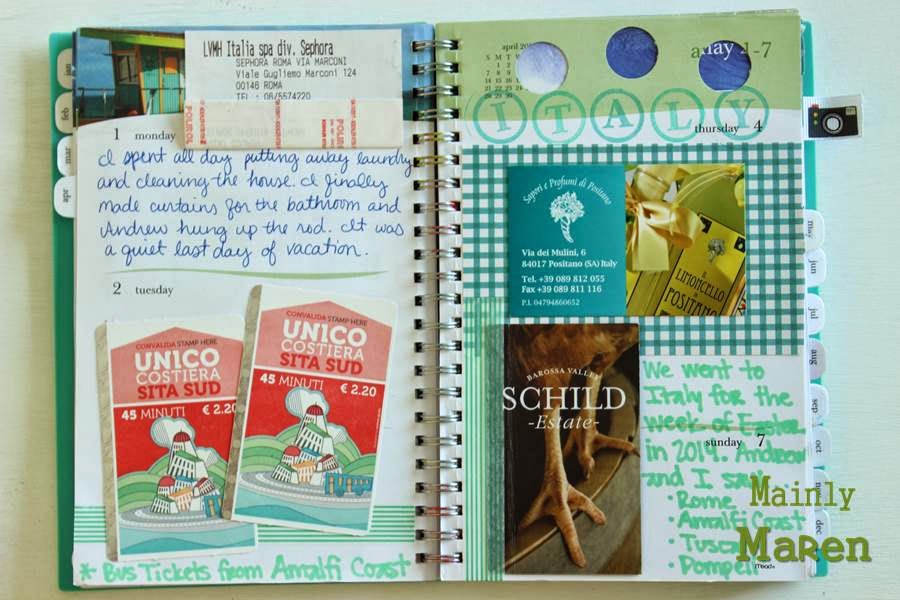 LVMH Italia spa div. Sephora
SEPHORA ROMA VIA MARCONI
Viale Gugliemo Marconi 124
00146 ROMA
TEL : 06/5574220
1 monday
I spent all day putting away laundry
and cleaning the house. I finally
made curtains for the bathroom and
Andrew hung up the rod. It was
a quiet last day of vacation.
2 tuesday
CONVALIDA STAMP HERE
UN1CO
COSTIERA
SITA SUD
45 MINUTI € 2.20
CONVALIDA STAMP HERE
UN1CO
COSTIERA
SITA SUD
45 MINUTI € 2.20
* Bus Tickets from Amalfi Coast
april
may 1-7
ITALY
thursday 4
Sapori e Profumi di Positano
Via dei Mulini, 6
84017 Positano (SA) Italy
Tel. +39 089 812 055
Fax +39 089 811 116
P.I. 04794860652
IL
LIMONCELLO
DI
POSITANO
BAROSSA VALLEY
SCHILD
-Estate-
We went to
Italy for the
week of Easter
sunday 7
in 2014. Andrew
and I saw:
• Rome
• Amalfi Coast
• Tusc
• Pompeii
may
jun
jul
aug
sep
oct
dec
Mainly
Maren